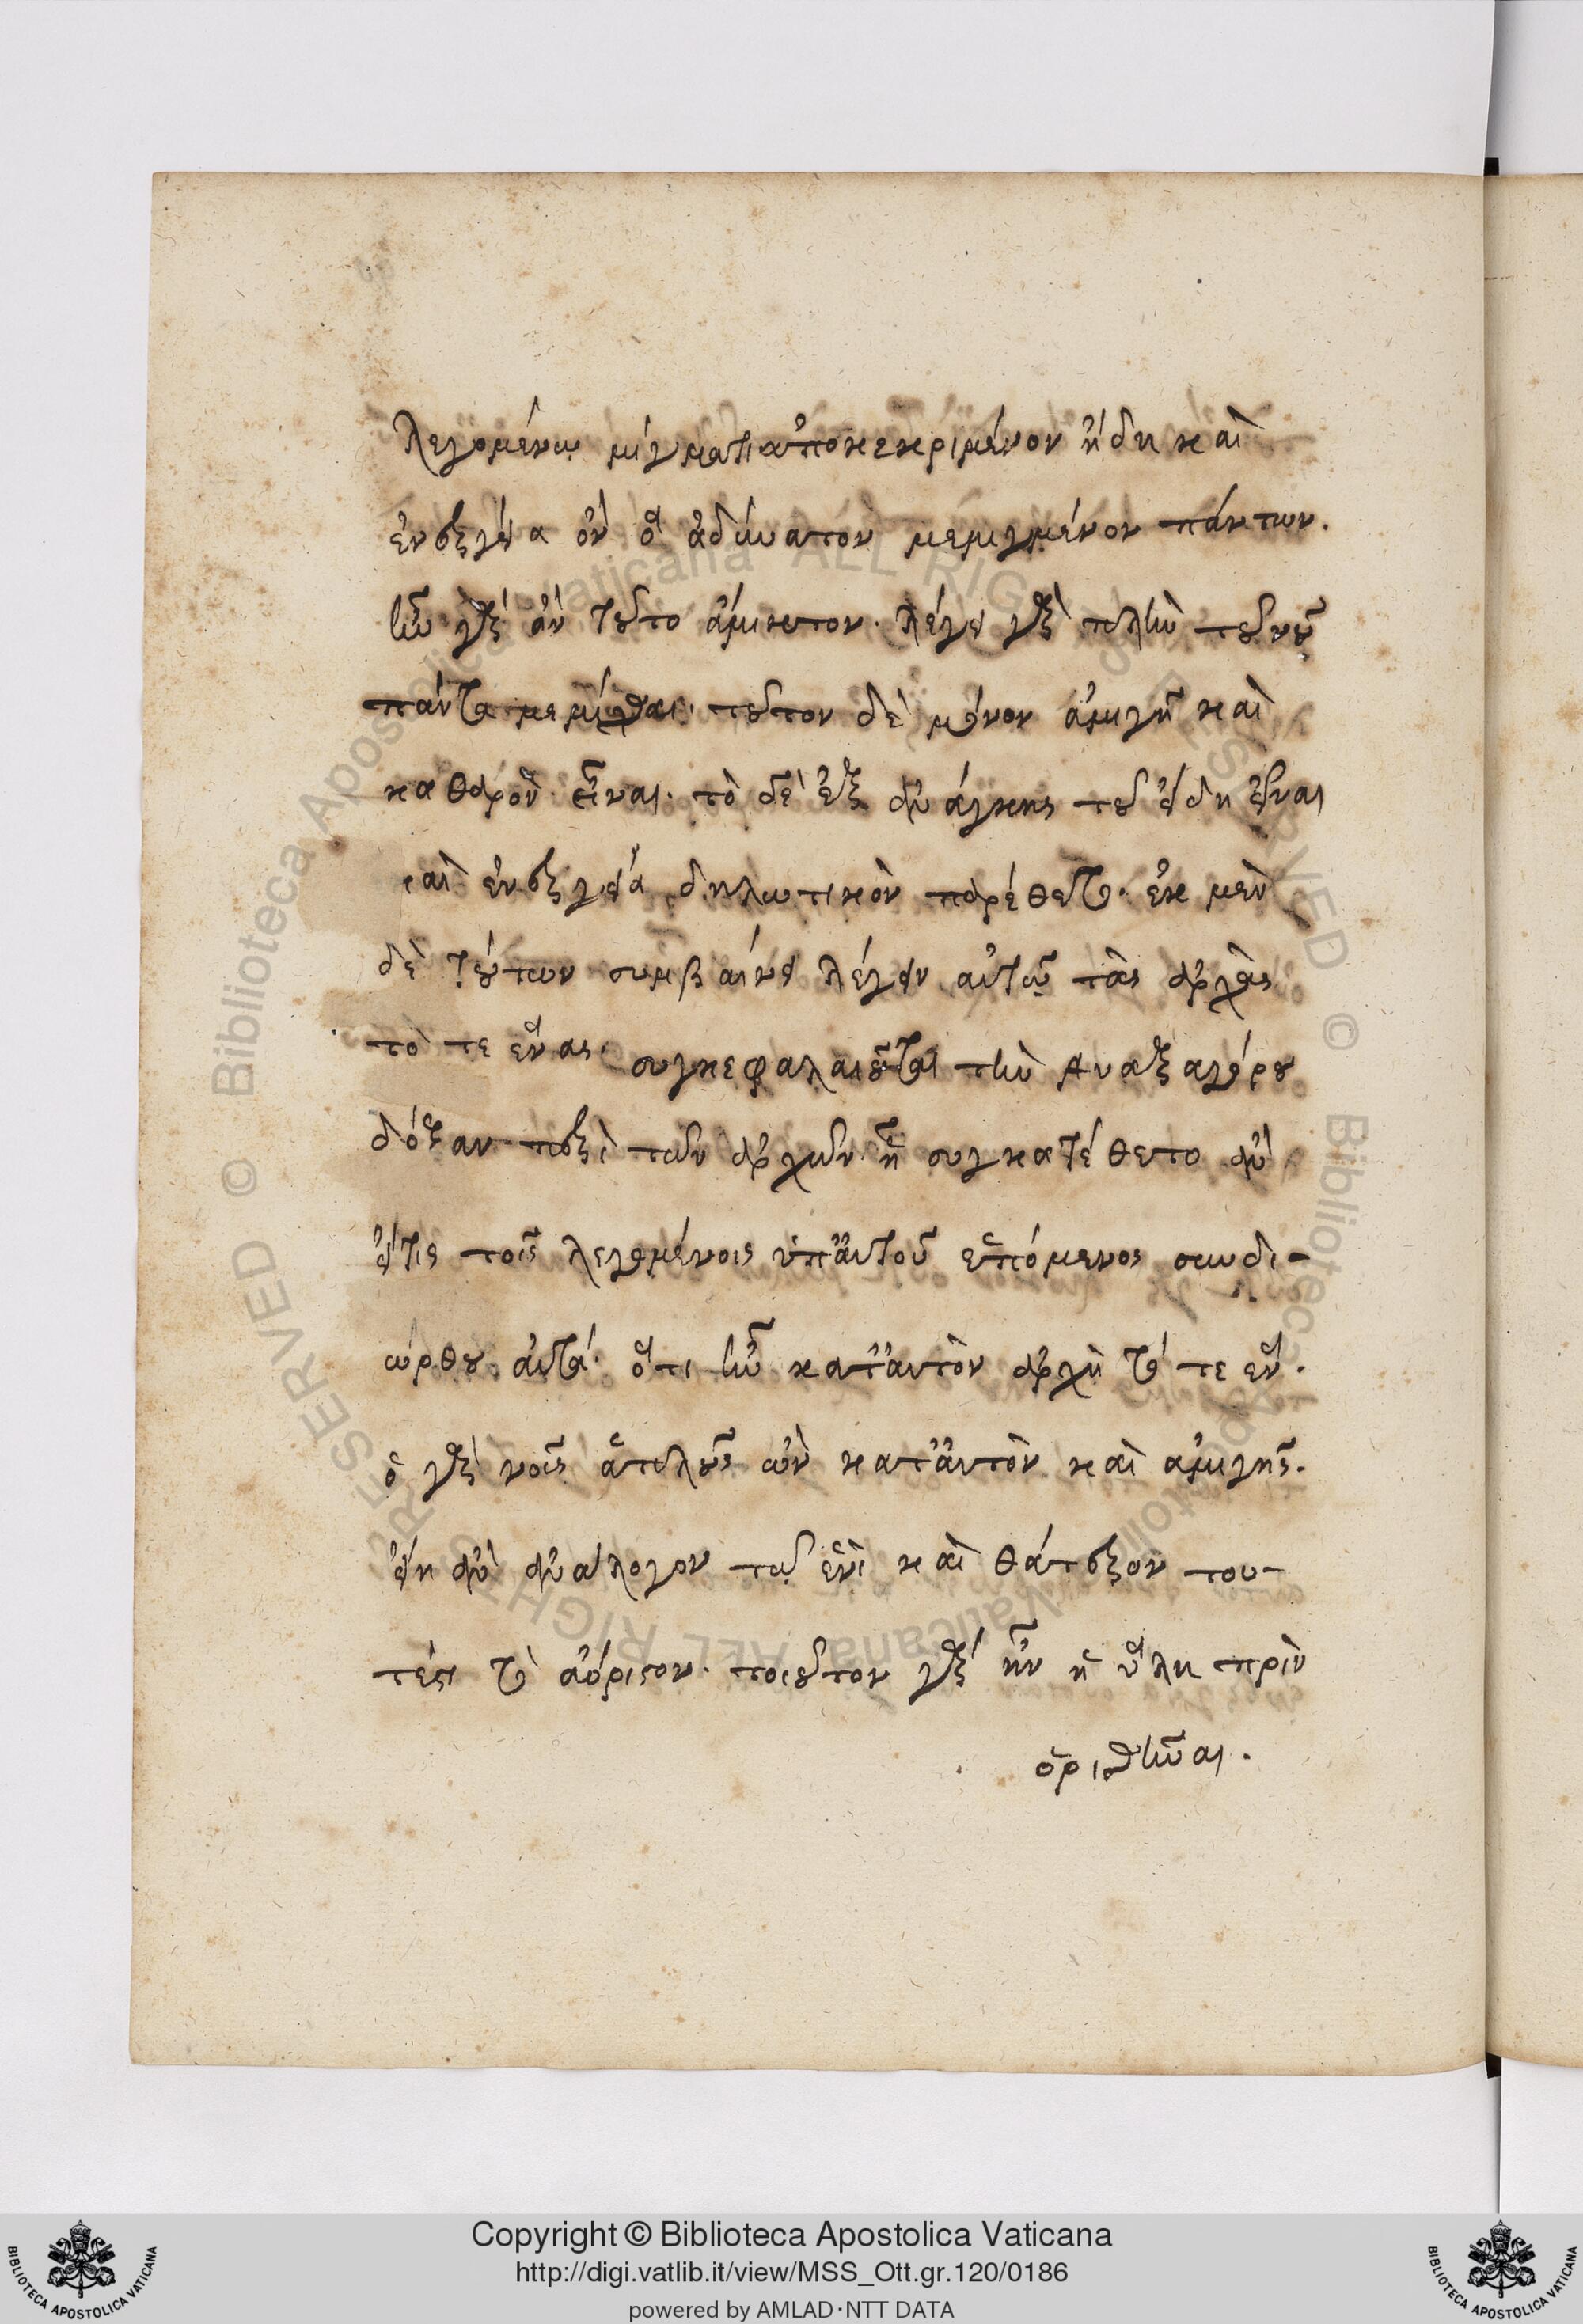 λεγομένῳ μίγματι ἀποκεκριμένον ἤδη καὶ
ἐνεργείᾳ ὂν ὃ ἀδύνατον μεμιγμένον πάντων.
ἦν γὰρ ἂν τοῦτο ἄμικτον. λέγει γὰρ πλὴν τοῦ νοῦ
πάντα μεμίχθαι. τοῦτον δὲ μόνον ἀμιγῆ καὶ
καθαρὸν εἶναι. τὸ δὲ ἐξ ἀνάγκης τοῦ εἴδη εἶναι
καὶ ἐνεργείᾳ δηλωτικὸν παρέθετο. ἐκ μὲν
δὴ τούτων συμβαίνει λέγειν αὐτῷ τὰς ἀρχὰς
τό τε ἓν ας. συγκεφαλαιοῦται τὴν Ἀναξαγόρου
δόξαν περὶ τῶν ἀρχῶν ᾗ συγκατέθετο ἂν
εἴ τις τοῖς λεγομένοις ὑπ' αὐτοῦ ἑπόμενος συνδι-
ώρθου αὐτά. ὅτι ἦν κατ' αὐτὸν ἀρχὴ τό τε ἕν.
ὁ γὰρ νοῦς ἁπλοῦς ὢν κατ' αὐτὸν καὶ ἀμιγὴς.
εἴη ἂν ἀνάλογον τῷ ἑνὶ καὶ θάτερον του-
τέστι τὸ ἀόριστον. τοιοῦτον γὰρ ἦν ἡ ὕλη πρὶν
ὁρισθῆναι.
Copyright © Biblioteca Apostolica Vaticana
http://digi.vatlib.it/view/MSS_Ott.gr.120/0186
powered by AMLAD·NTT DATA
BIBLIOTECA APOSTOLICA VATICANA
BIBLIOTECA APOSTOLICA VATICANA